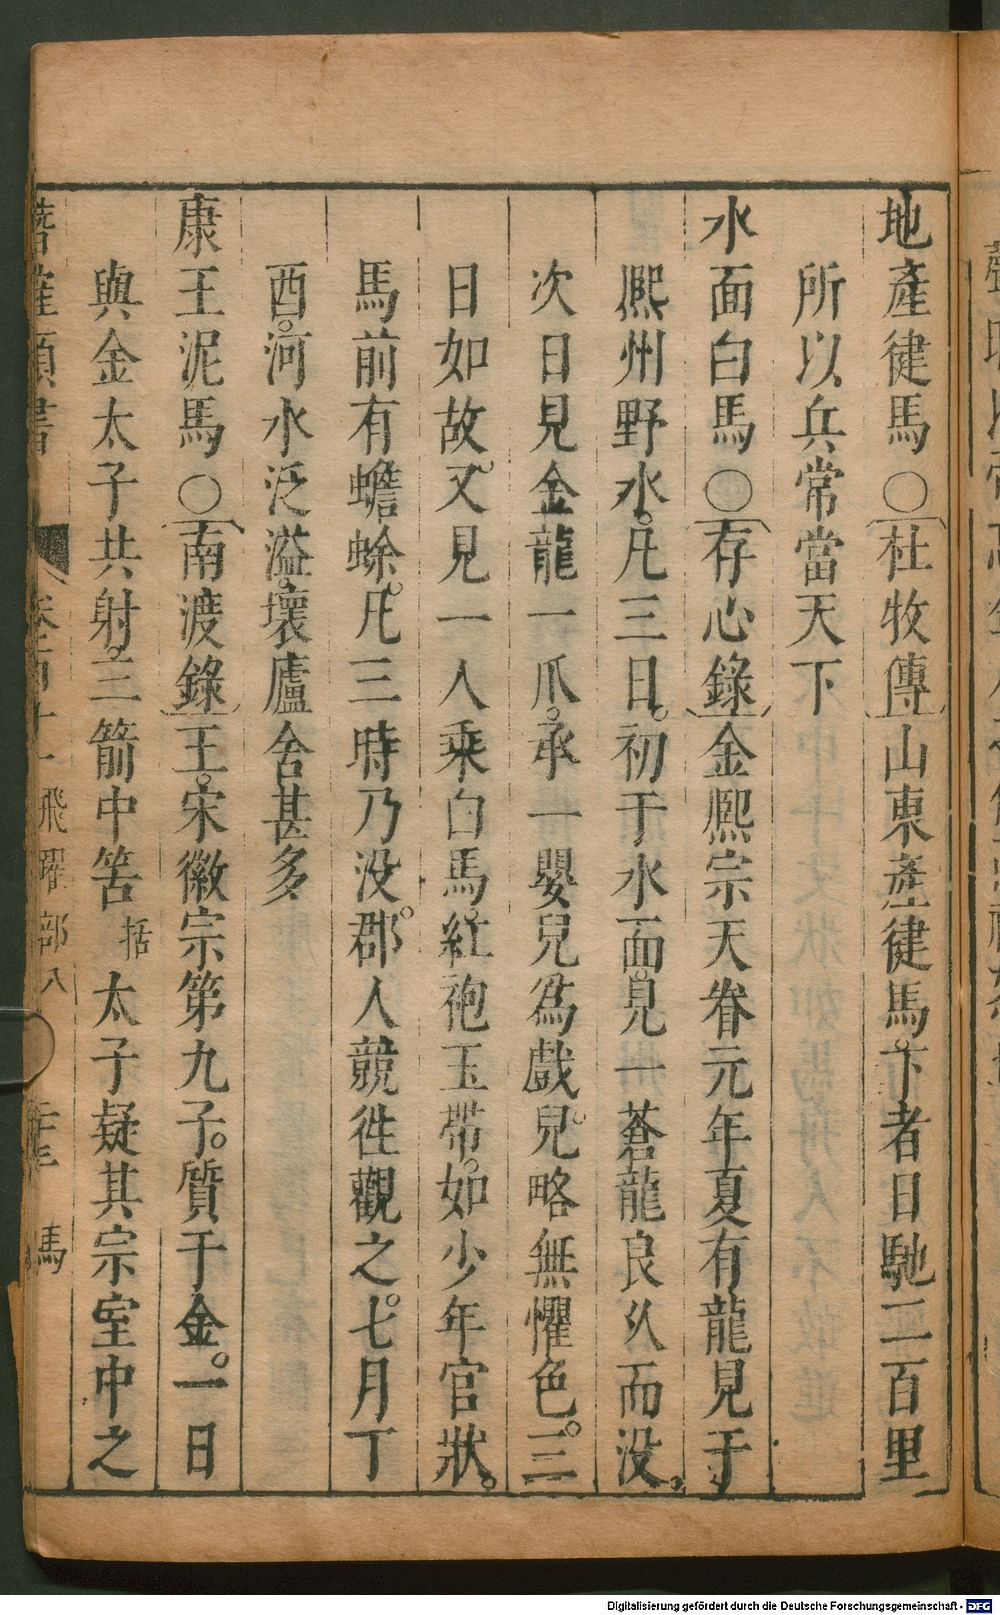 地產徤馬○杜牧傳山東產徤馬下者日馳二百里
所以兵常當天下
水面白馬○存心錄金熙宗天眷元年夏有龍見于
熙州野水凡三日初于水面見一蒼龍良久而没
次日見金龍一爪承一嬰兒爲戲兒略無懼色三
日如故又見一人乘白馬紅袍玉帶如少年官狀
馬前有蟾蜍凡三時乃没郡人競徃觀之七月丁
酉河水泛溢壞廬舍甚多
康王泥馬○南渡錄王宋徽宗第九子質于金一日
與金太子共射三箭中筈括太子疑其宗室中之
飛躍部八
馬
Digitalisierung gefördert durch die Deutsche Forschungsgemeinschaft - DFG